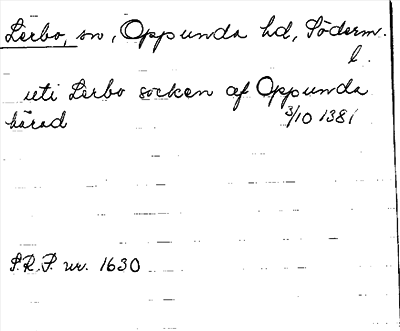 Lerbo, sn, Oppunda hd, Söderm.
l.
uti Lerbo socken af Oppunda
härad 3/10 1381
S.R.P. nr. 1630